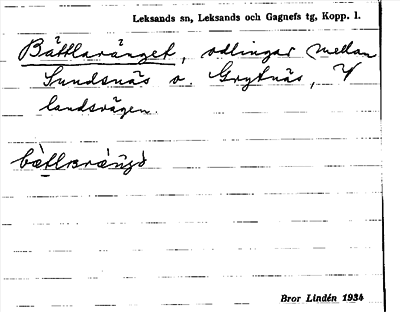 Leksands sn, Leksands och Gagnefs tg, Kopp. l.
Bättlaränget, odlingar mellan
Sundsnäs o. Grytnäs, V
landsvägen.
Bror Lindén 1934